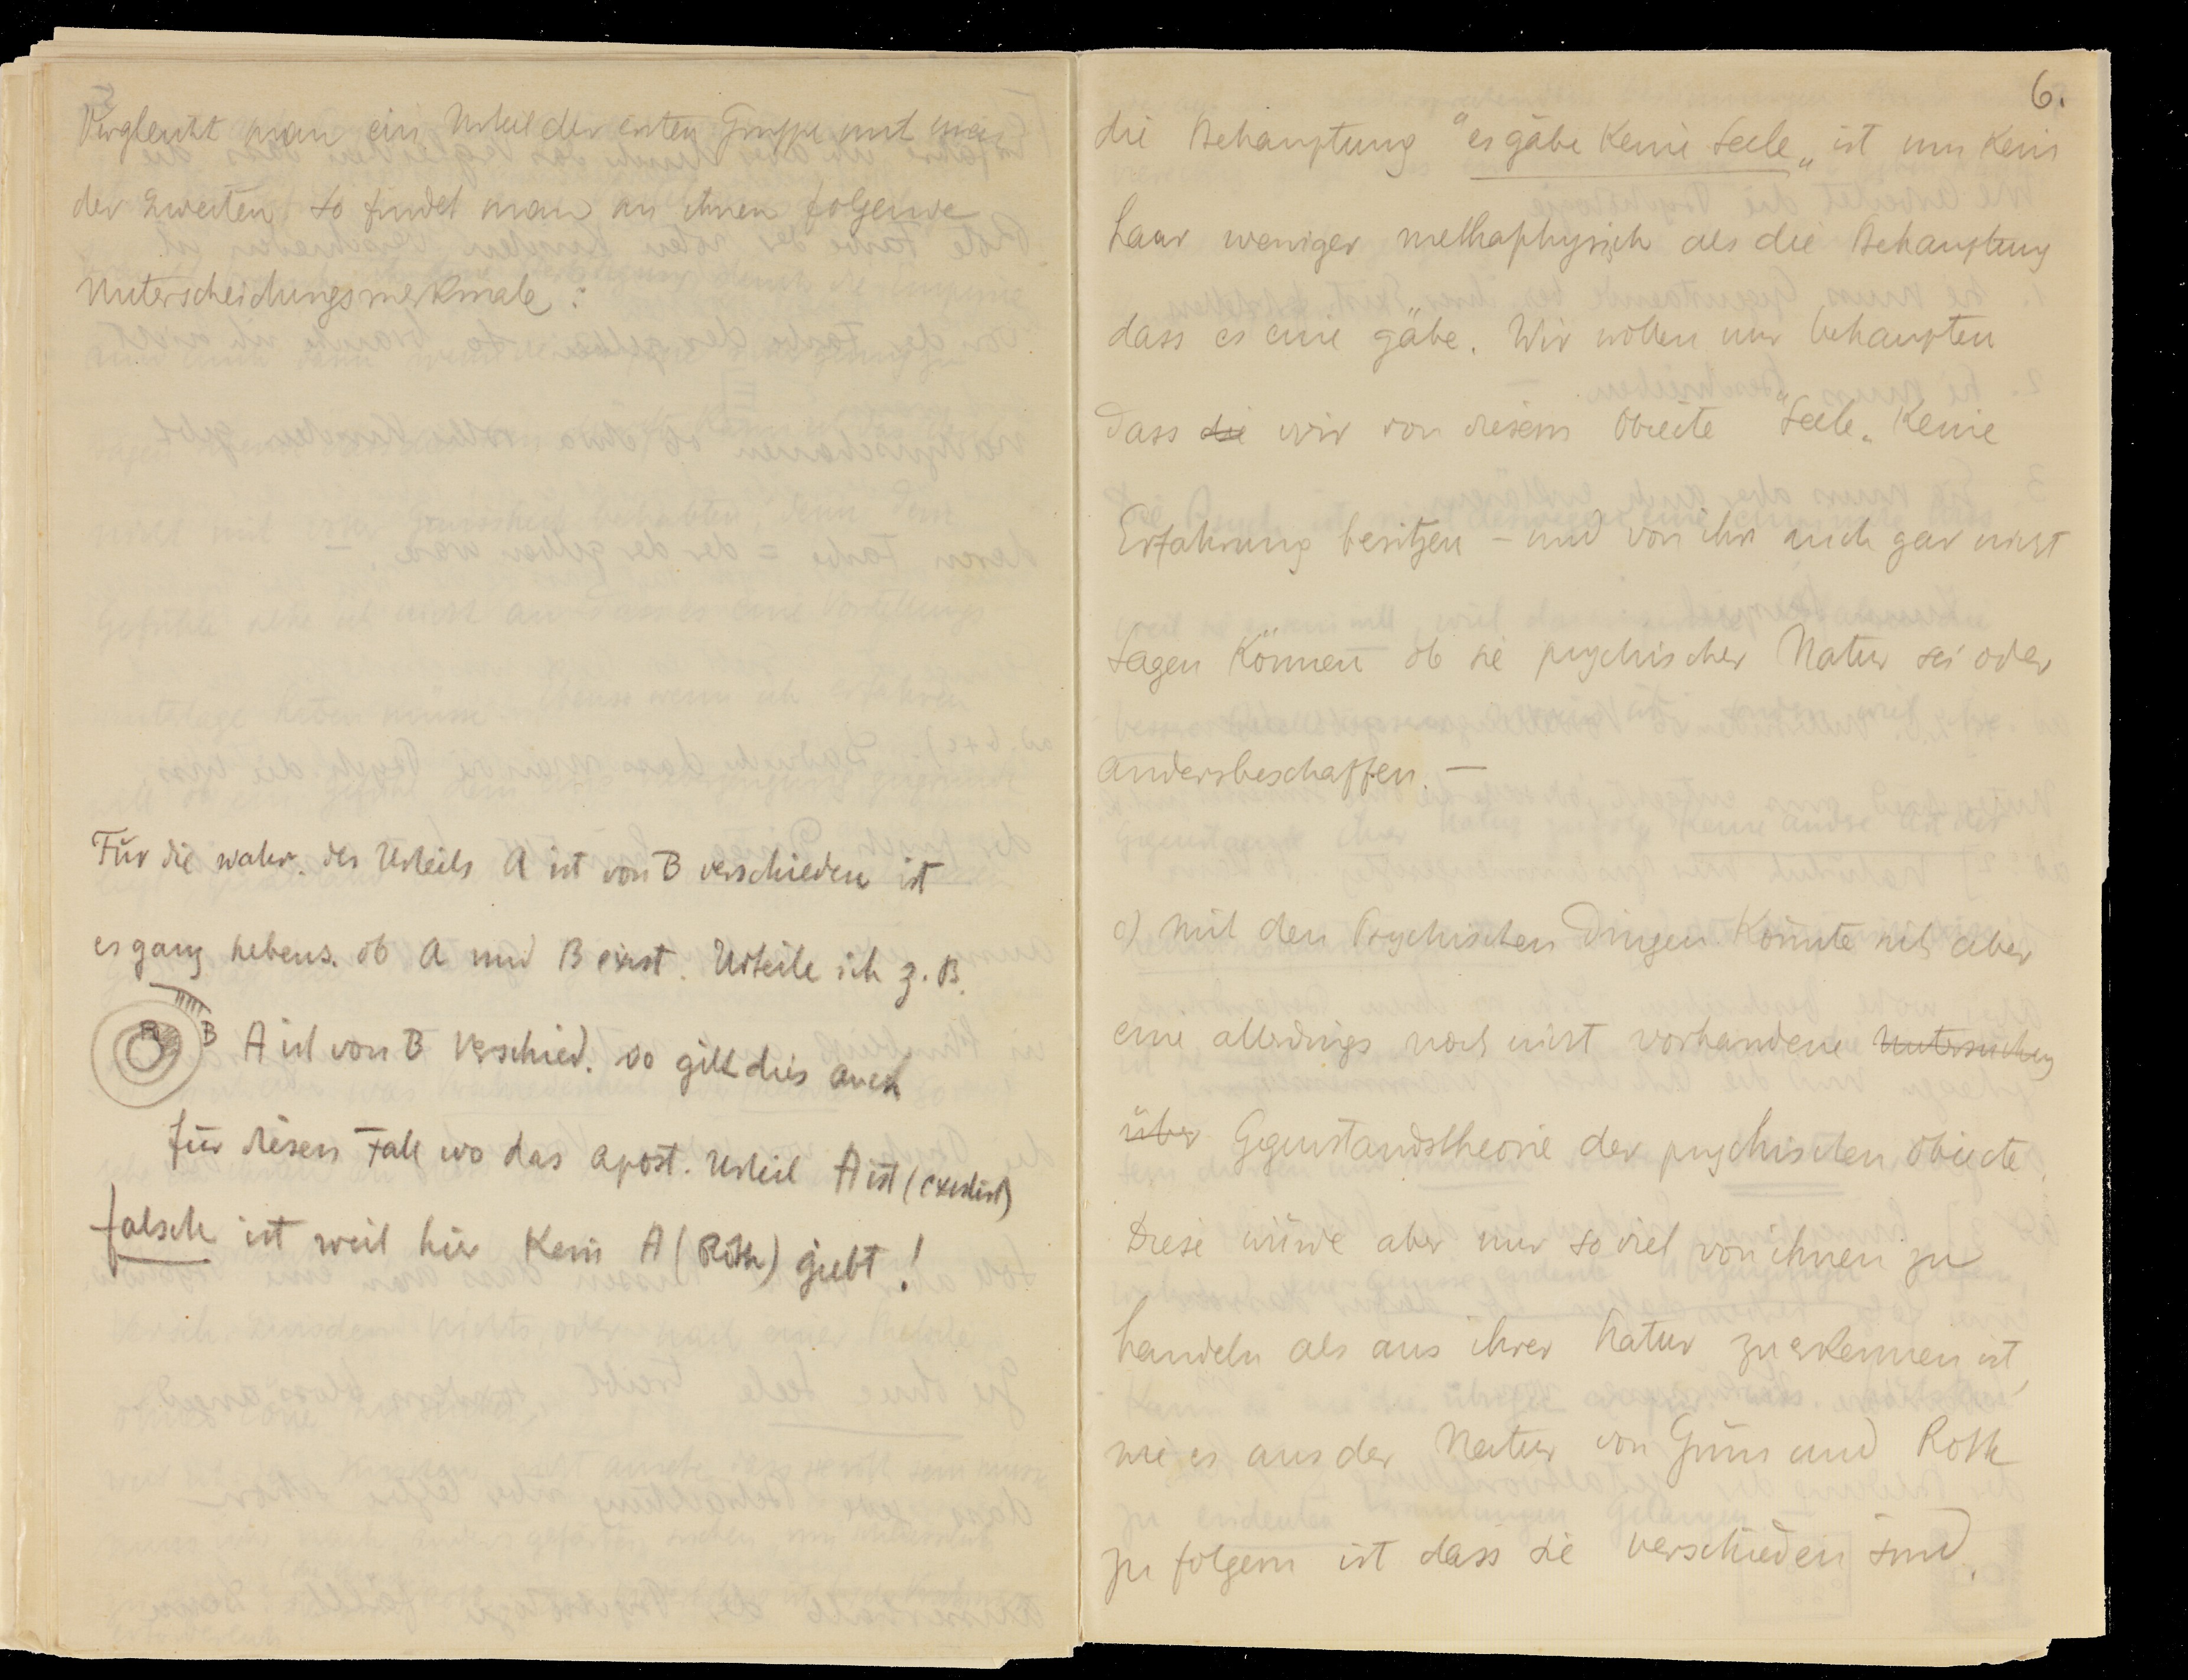 Vergleicht man ein Urteil der ersten Gruppe mit einer
der zweiten so findet man an ihnen folgende
Unterscheidungsmerkmale:
Für die wahr. des Urteils A ist von B verschieden ist
es ganz nebens. ob A und B exist. Urteile ich z. B.
B A ist von B verschied. so gilt dies auch
für diesen Fall wo das apost. Urteil A ist (existiert)
falsch ist weil hier kein A (Roth) giebt!
6.
die Behauptung "es gäbe keine Seele" ist um kein
haar weniger methaphysisch als die Behauptung
dass es eine gäbe. Wir wollen nur behaupten
dass die wir von diesem Objecte "Seele" keine
Erfahrung besitzen – und von ihr auch gar nicht
sagen können ob sie psychischer Natur sei oder
andersbeschaffen. –
c) Mit den Psychischen Dingen könnte sich aber
eine allerdings noch nicht vorhandene Untersuchung
über Gegenstandstheorie der psychischen Objecte.
Diese würde aber nur so viel von ihnen zu
handeln als aus ihrer Natur zu erkennen ist,
wie es aus der Natur von Grün und Roth
zu folgern ist dass sie verschieden sind.